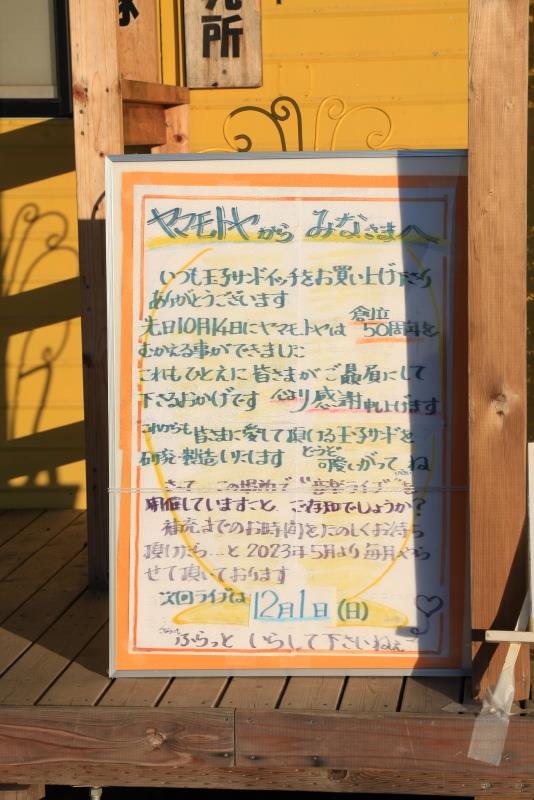 所
ヤマモトヤから みなさまへ
いつも玉子サンドイッチをお買い上げ下さり
ありがとうございます
先日10月14日にヤマモトヤは 創立50周年を
むかえる事ができました
これもひとえに皆さまがご贔屓にして
下さるおかげです 心より感謝申し上げます
これからも 皆さまに愛して頂ける玉子サンドを
研究・製造いたします どうぞ可愛がってね
さて この場所で "音楽ライブ" を
開催していますこと ご存知でしょうか?
補充までのお時間をたのしくお待ち
頂けたら…と 2023年5月より毎月やら
せて頂いております
次回ライブは 12月1日(日)
ふらっと いらして下さいねぇ